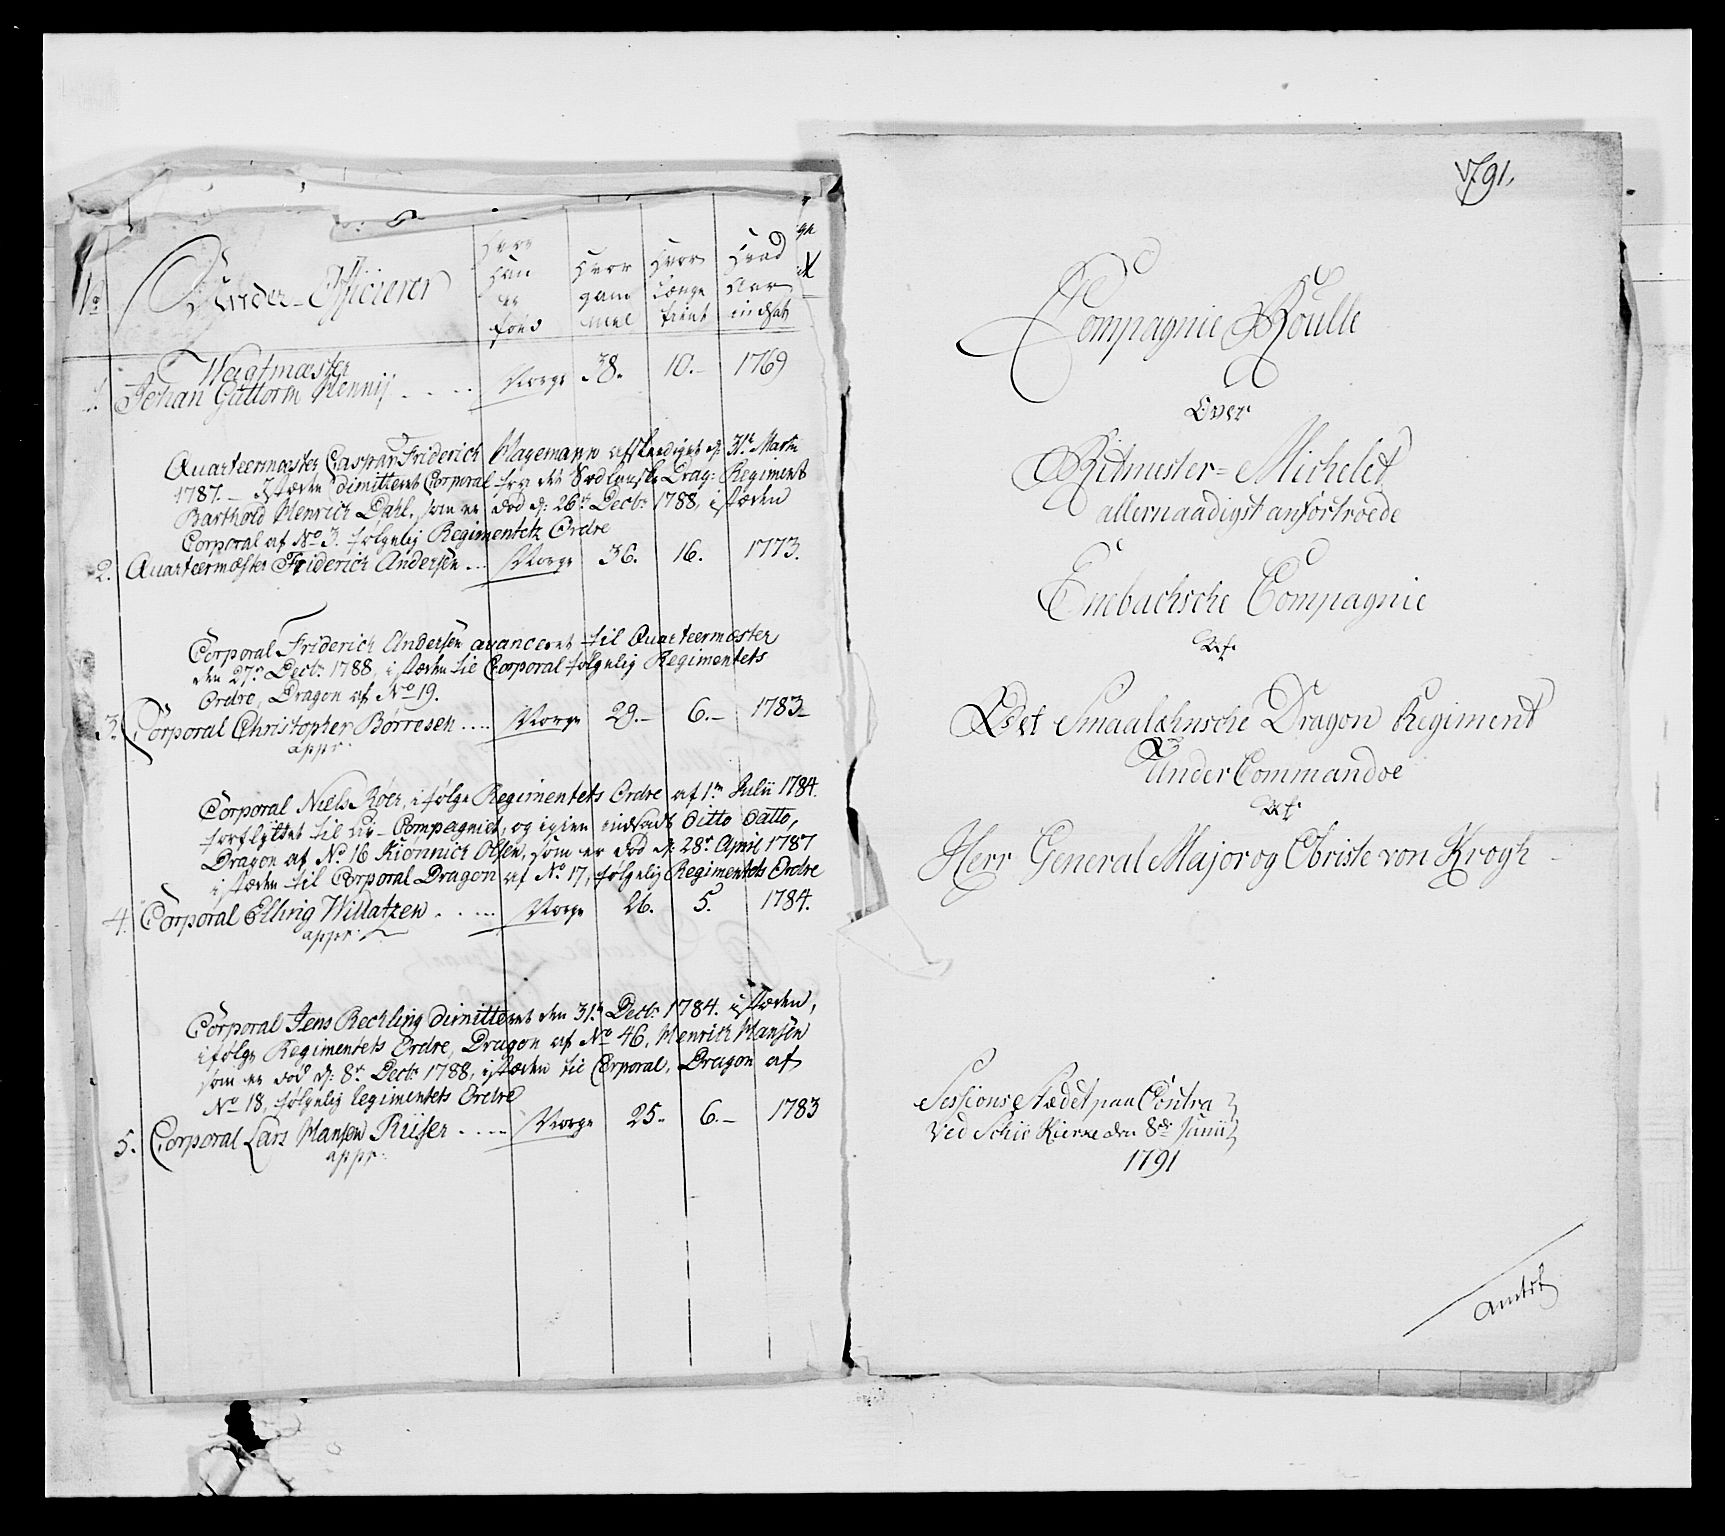 No
Under-Officierer
Hvor
han
er
fød
Hvor
gam
mel
Hvor
længe
tient
Hvad
Aar
indsat
1. Wagtmæster
Johan Guttorm Hennij . . . . Norge 38. 10.- 1769
Quarteermæster Caspar Friderich Hagemann afskediget d: 31te Martii
1787. - I stæden dimitteret Corporal fra det Drag: Regiment
Barthold Henrich Dahl, som er død d: 26de Decbr 1788, i stæden
Corporal af No 3. følgelig Regimentets Ordre
2. Quarteermæster Friderich Andersen ... Norge 36. 16. 1773.
Corporal Friderich Andersen avanceret til Quarteermæster
den 27de Decbr 1788, i stæden til Corporal følgelig Regimentets
Ordre, Dragon af No 19.
3. Corporal Christopher Børresen .... Norge 29.- 6.- 1783-
appr:
Corporal Niels Röer, i følge Regimentets Ordre af 1te Julii 1784.
forflyttet til Liv-Compagniet, og igien indsadt ditto datto,
Dragon af No 16 Kiönnich Olsen, som er død d: 28de April 1787
i stæden til Corporal Dragon af No 17, følgelig Regimentets Ordre
4. Corporal Elling Willatzen . . . ... Norge 26. 5. 1784.
appr:
Corporal Jens Rechling dimitteret den 31te Decbr 1784. i stæden,
ifølge Regimentets Ordre, Dragon af No 46, Henrich Hansen
som er død d: 8de Decbr 1788, i stæden til Corporal, Dragon af
No 18, følgelig Regimentets Ordre
5. Corporal Lars Hansen Riiser . . ... Norge 25. 6.- 1783
appr:
1791,
Compagnie Roulle
Over
Ritmester=Michelet
allernaadigst anfortroede
Enebachsche Compagnie
Af
Det Smaalehnsche Dragon Regiment
Under Commandoe
Af
Herr General Major og Obriste von Krogh
Sessions Stædet paa Contra
Ved Schie Kierke den 8de Junii
1791